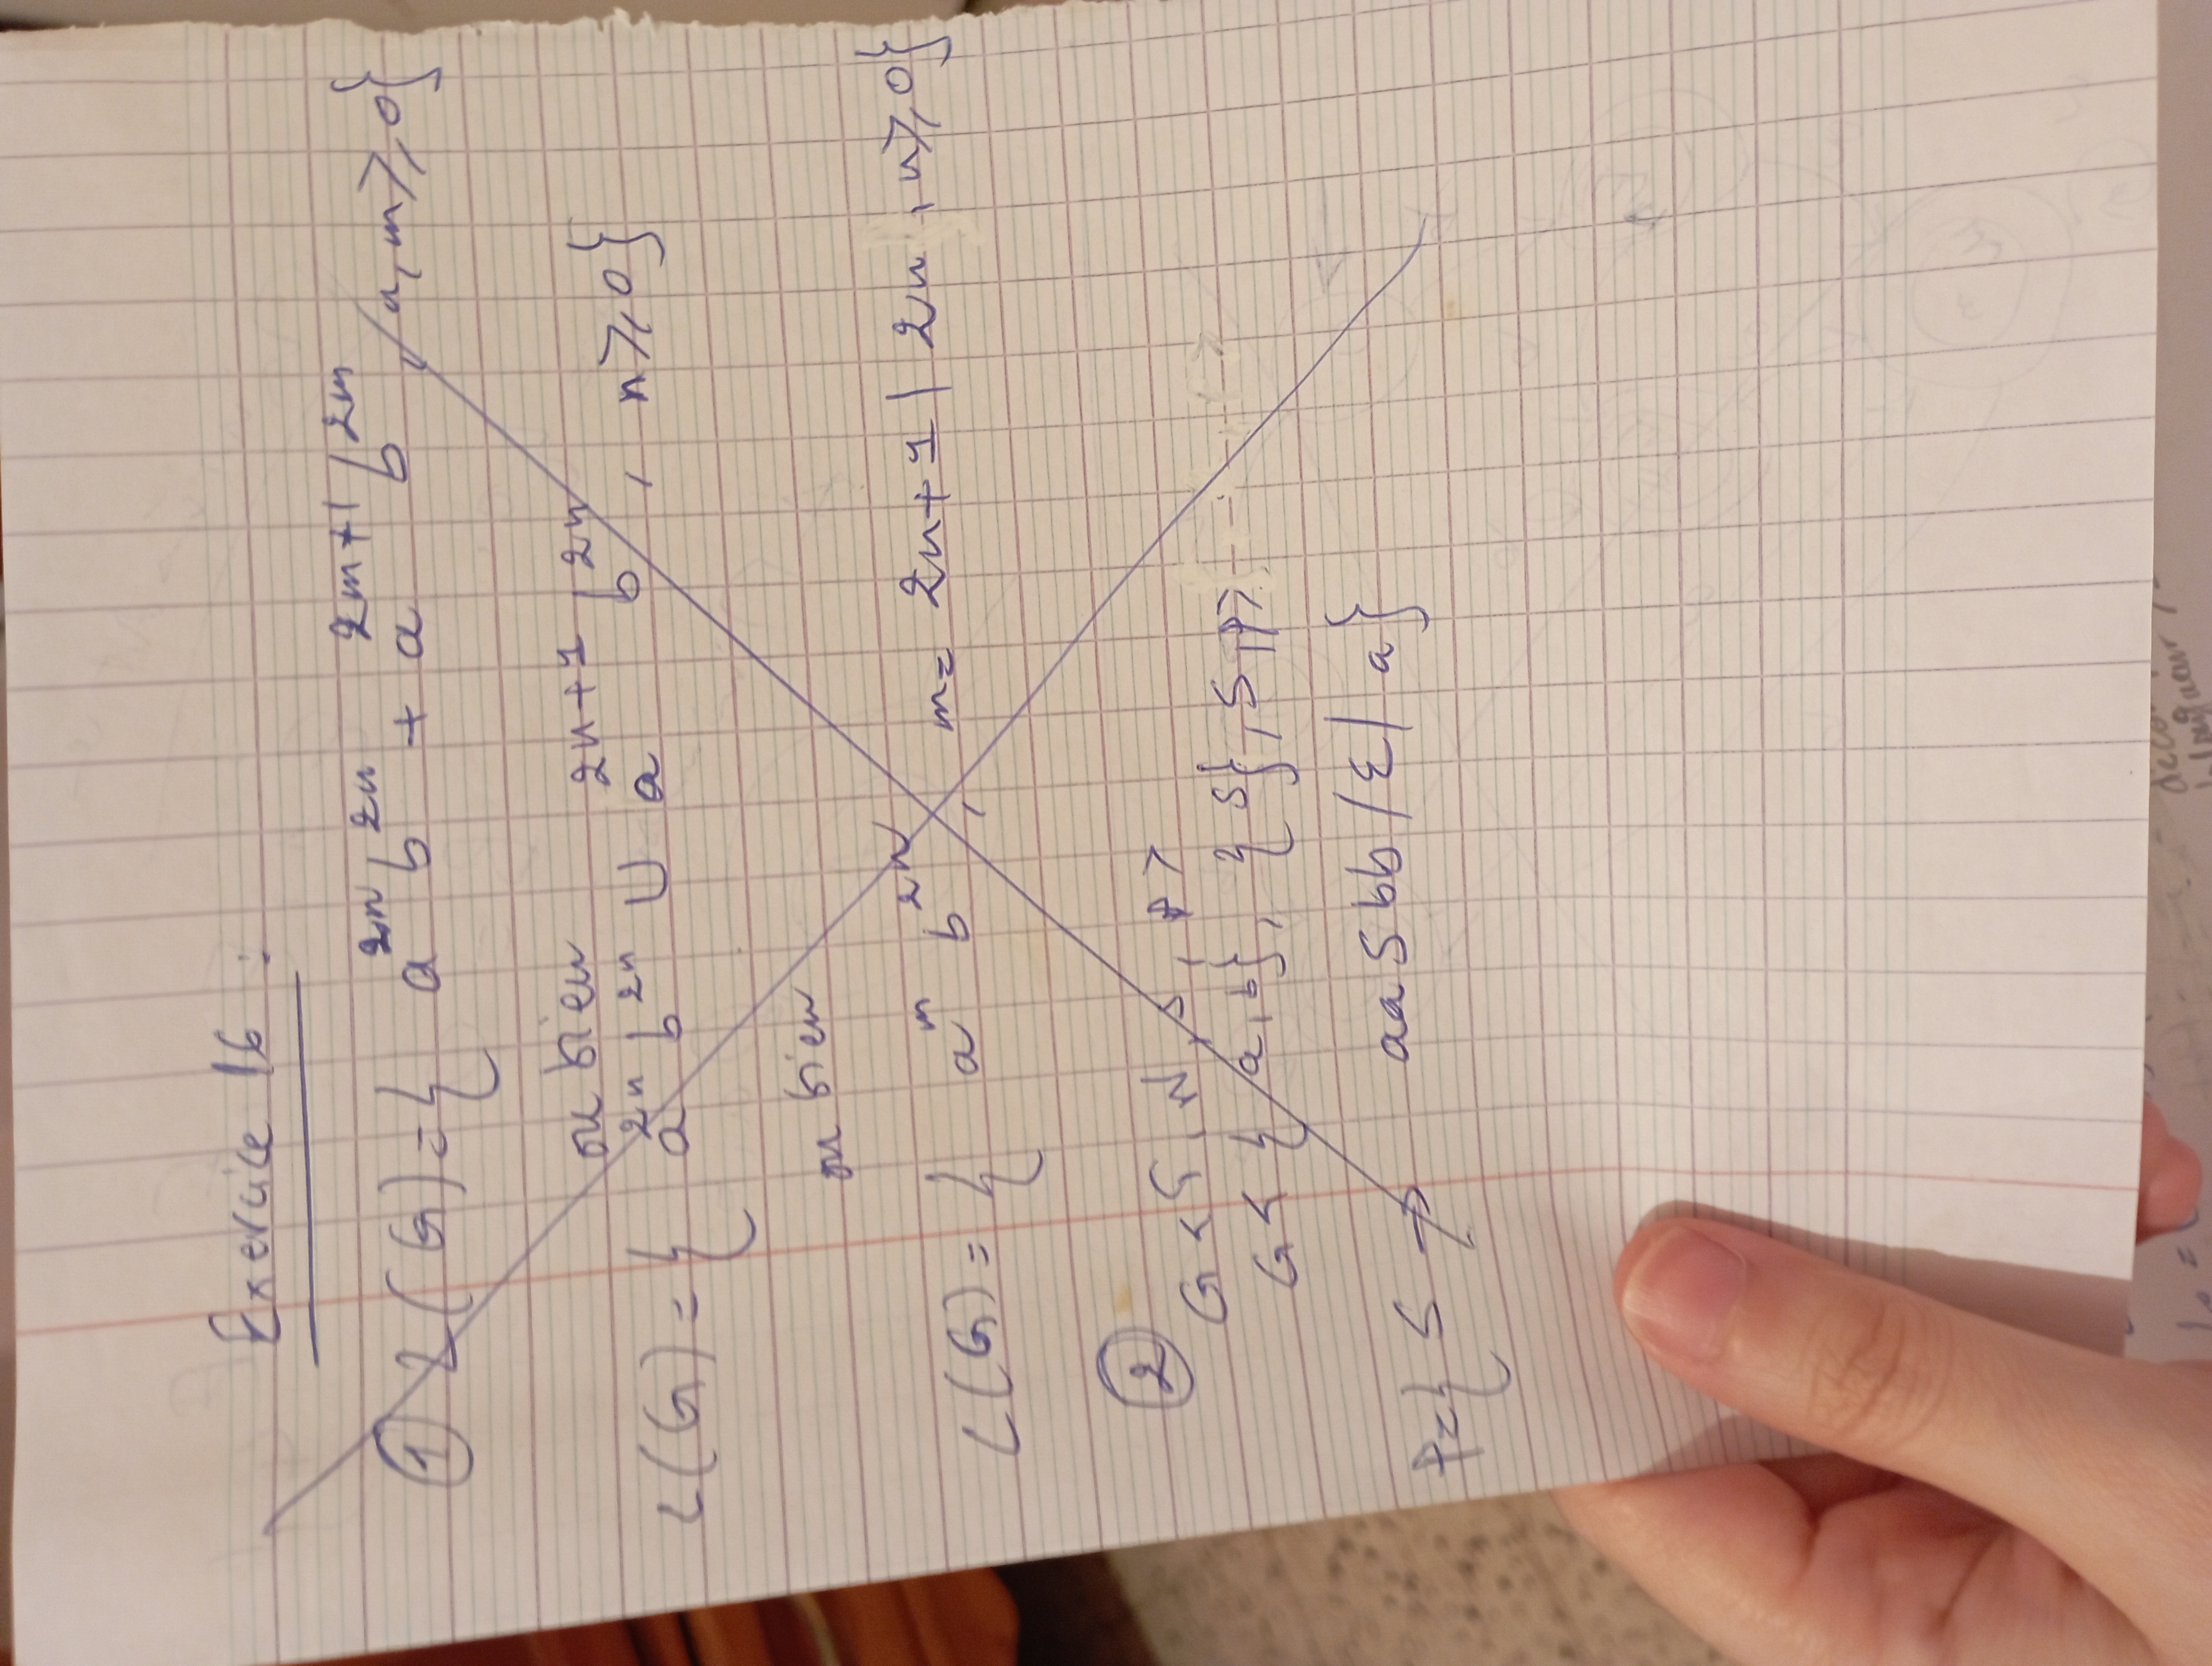 Exercice 16 :
① L(G)={ a²ⁿ b²ⁿ + a²ᵐ⁺¹ b²ᵐ / n, m ≥, 0}
ou bien
L(G)={ a²ⁿ b²ⁿ U a²ⁿ⁺¹ b²ⁿ , n ≥, 0}
ou bien
L(G)={ aᵐ b²ⁿ , m= 2n+1 | 2n , n≥, 0}
②
G < , N, S, P >
G < { a, b}, { S}, S, P>
P={ S → aa S bb / ε / a}